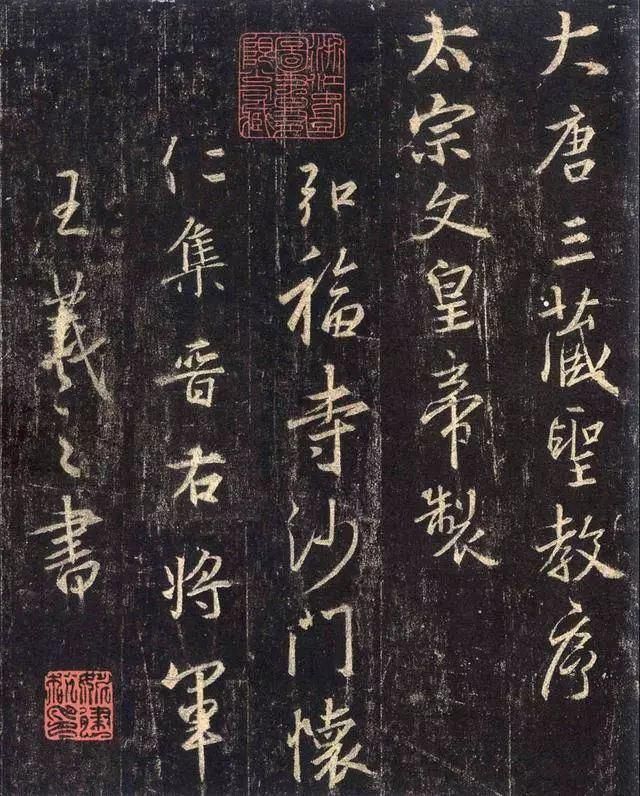 大唐三藏聖教序
太宗文皇帝製
弘福寺沙門懷
仁集晉右將軍
王羲之書